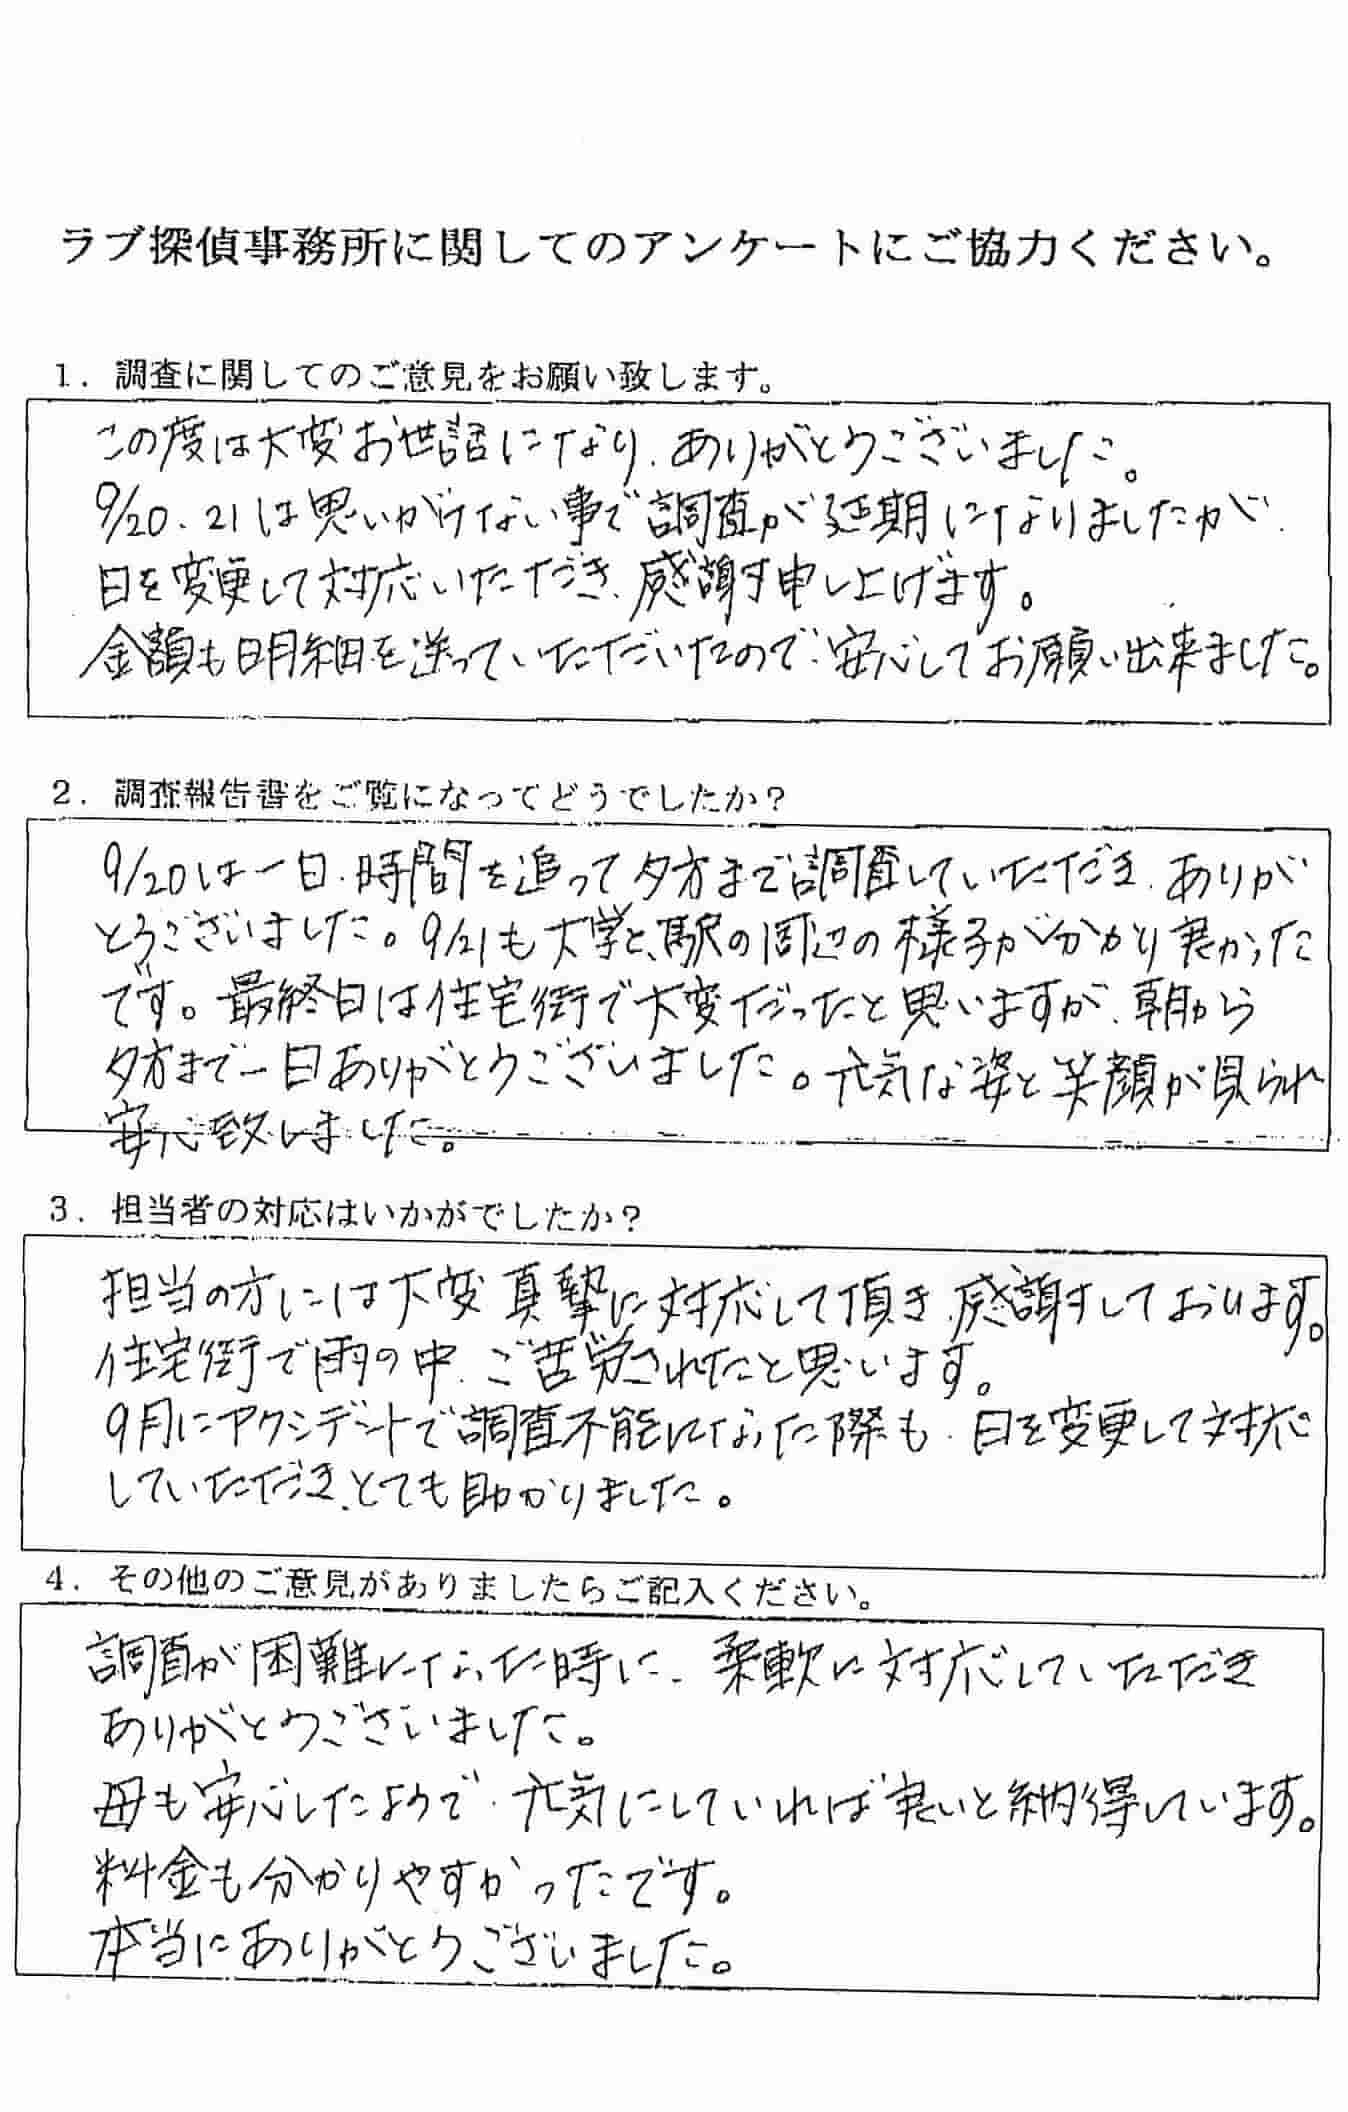 ラブ探偵事務所に関してのアンケートにご協力ください。
1．調査に関してのご意見をお願い致します。
この度は大変お世話になり、ありがとうございました。
9/20、21は思いがけない事で調査が延期になりましたが、
日を変更して対応いただき、感謝申し上げます。
金額も明細を送っていただいたので、安心してお願い出来ました。
2．調査報告書をご覧になってどうでしたか？
9/20は一日、時間を追って夕方まで調査していただき、ありが
とうございました。9/21も大学と、駅の周辺の様子が分かり良かった
です。最終日は住宅街で大変だったと思いますが、朝から
夕方まで一日ありがとうございました。元気な姿と笑顔が見られ
安心致しました。
3．担当者の対応はいかがでしたか？
担当の方には大変真摯に対応して頂き、感謝しております。
住宅街で雨の中、ご苦労されたと思います。
9月にアクシデントで調査不能になった際も、日を変更して対応
していただき、とても助かりました。
4．その他のご意見がありましたらご記入ください。
調査が困難になった時に、柔軟に対応していただき
ありがとうございました。
母も安心したようで、元気にしていれば良いと納得しています。
料金も分かりやすかったです。
本当にありがとうございました。